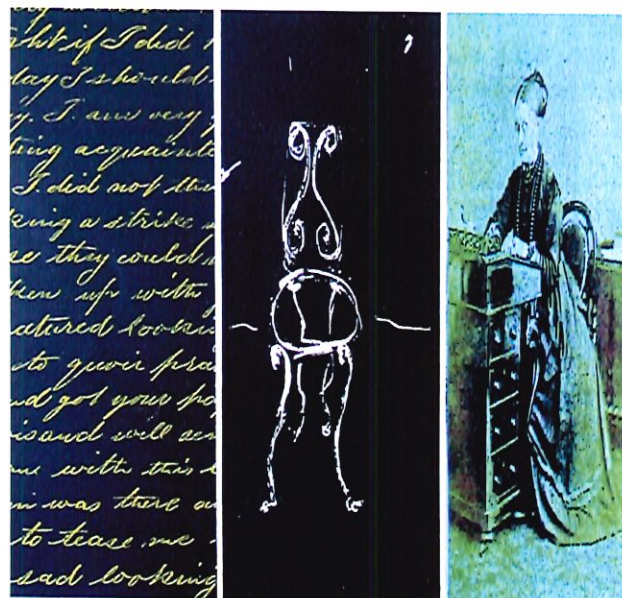 ght if I did
day I should
y. I am very
ting acquainte
I did not
king a strike
se they could
ken up with
atured looking
to
nd got your
is and will
me with this
in was there
to tease me
sad looking